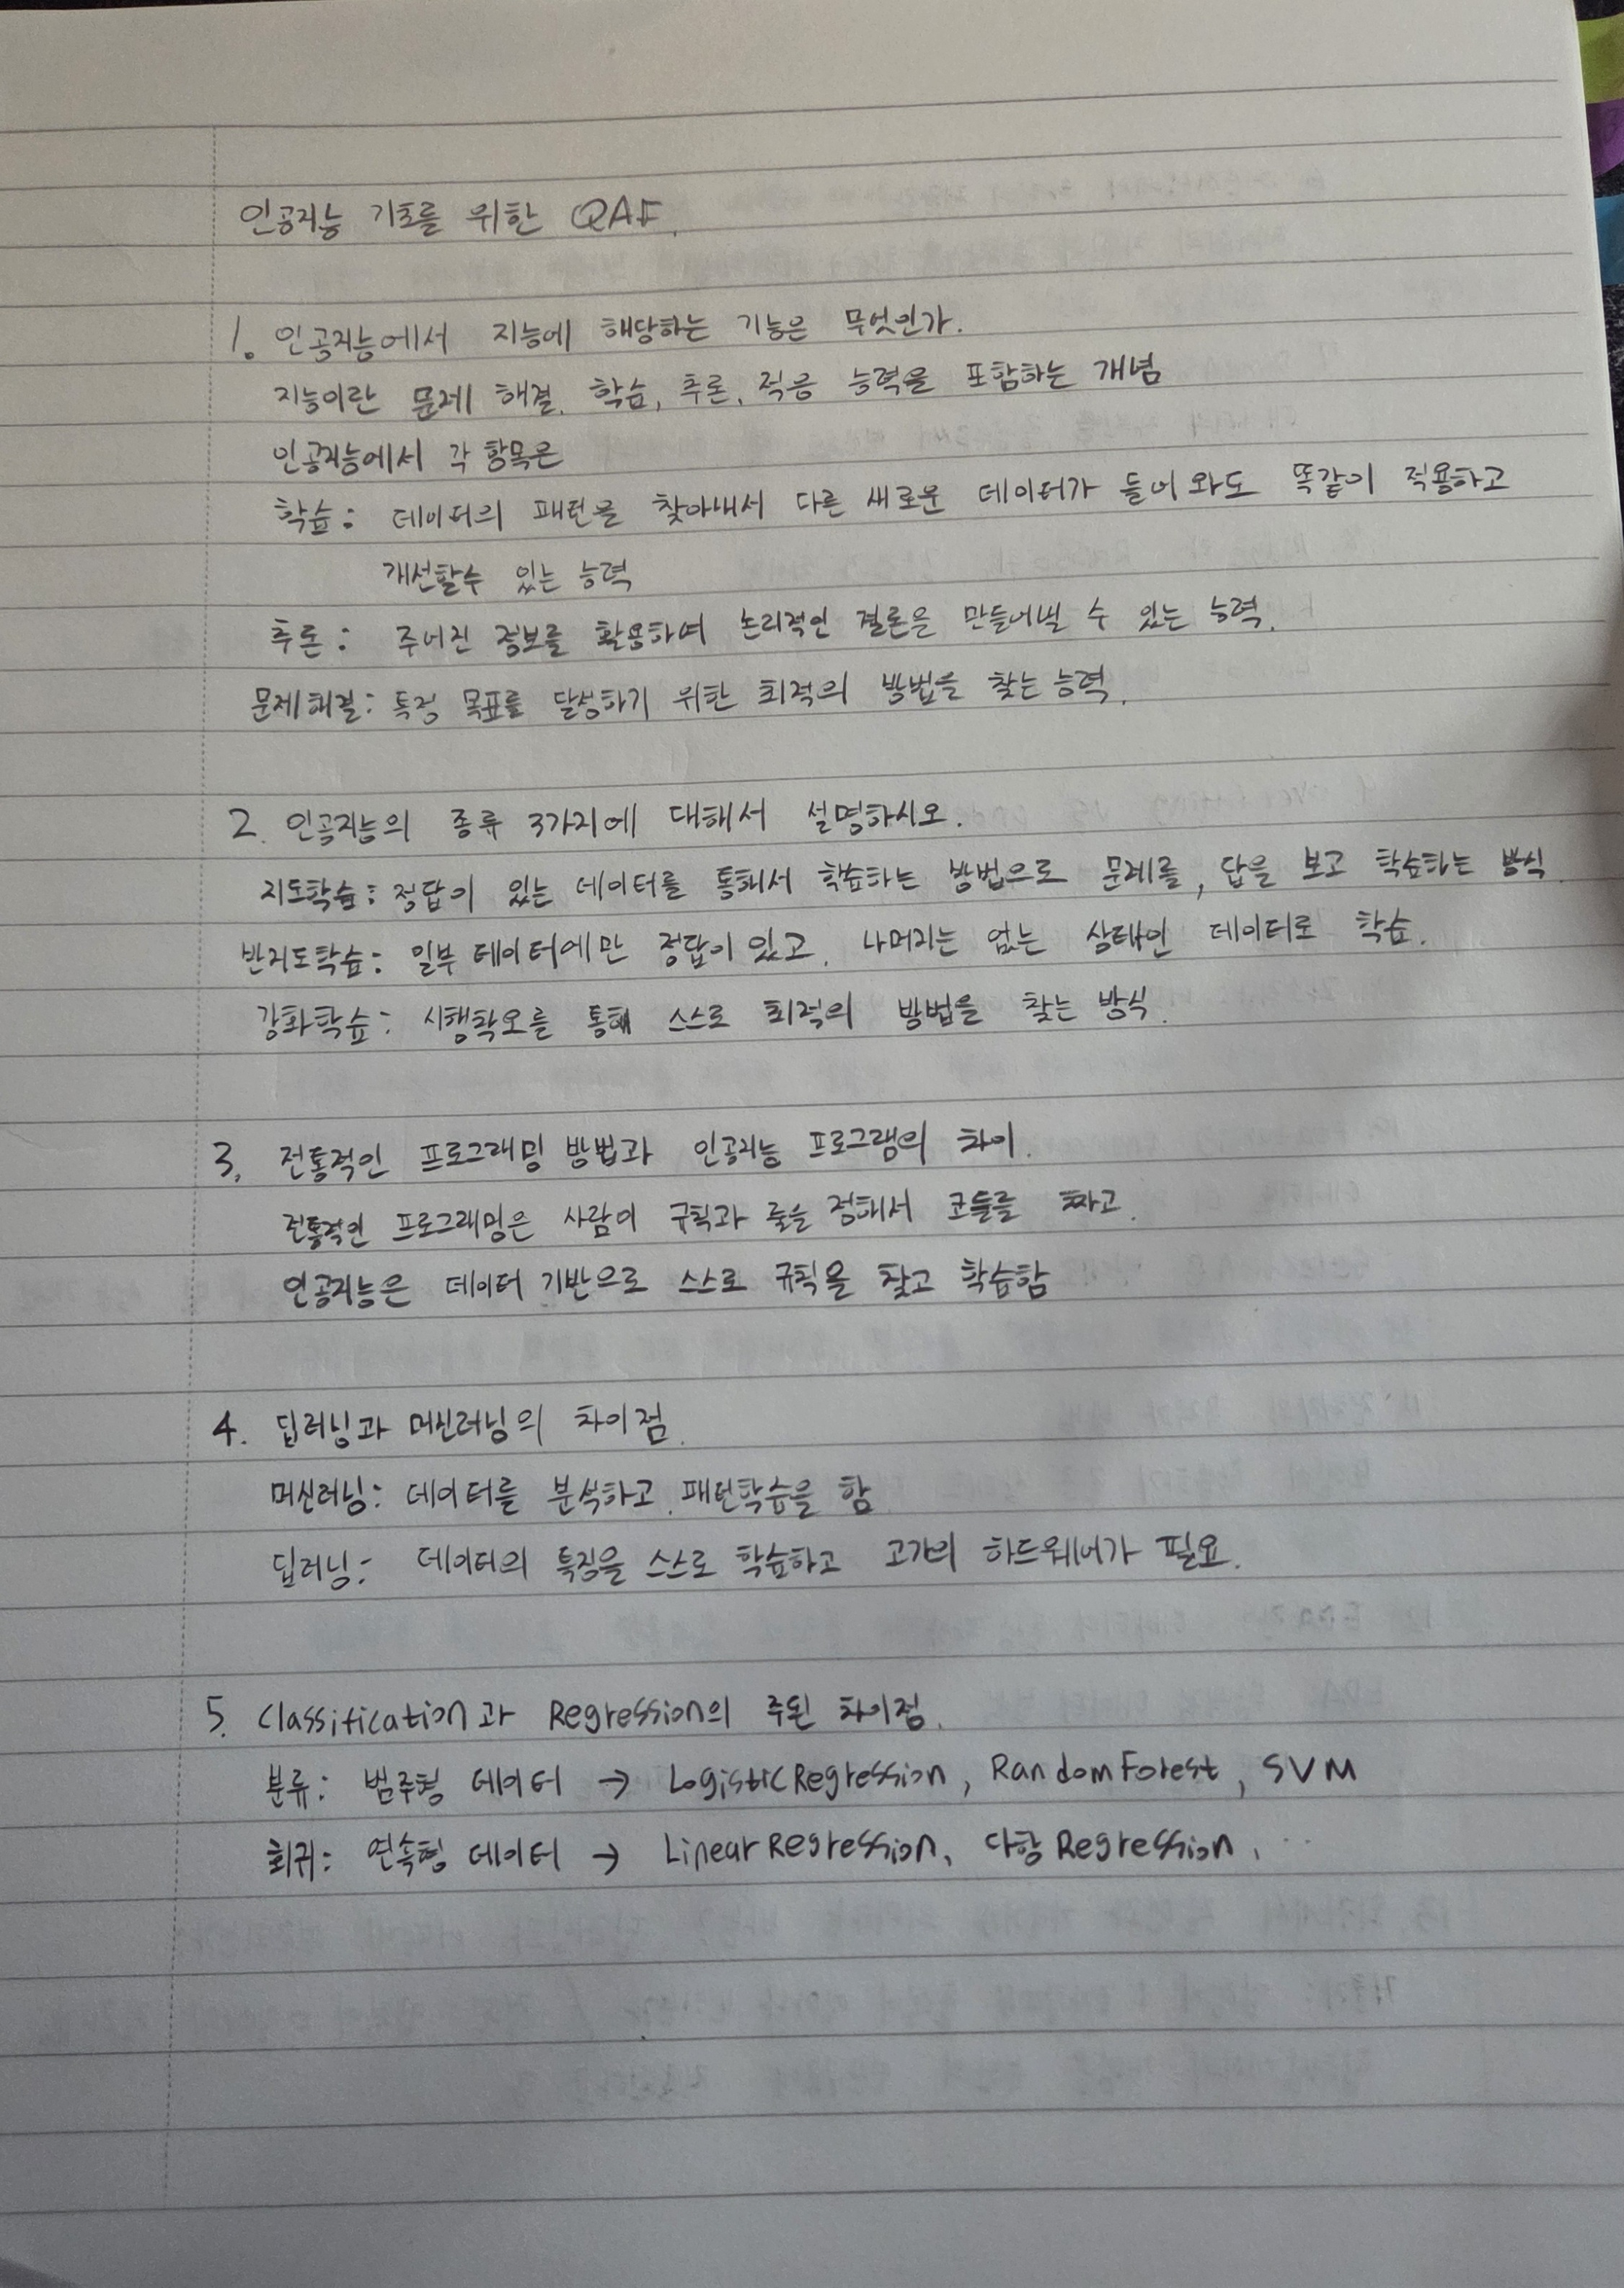 인공지능 기초를 위한 QAF.
1. 인공지능에서 지능에 해당하는 기능은 무엇인가.
지능이란 문제 해결, 학습, 추론, 적응 능력을 포함하는 개념
인공지능에서 각 항목은
학습: 데이터의 패턴을 찾아내서 다른 새로운 데이터가 들어와도 똑같이 적용하고
개선할수 있는 능력
추론: 주어진 정보를 활용하여 논리적인 결론을 만들어낼 수 있는 능력.
문제해결: 특정 목표를 달성하기 위한 최적의 방법을 찾는 능력.
2. 인공지능의 종류 3가지에 대해서 설명하시오.
지도학습: 정답이 있는 데이터를 통해서 학습하는 방법으로 문제를, 답을 보고 학습하는 방식.
반지도학습: 일부 데이터에만 정답이 있고, 나머지는 없는 상태인 데이터로 학습.
강화학습: 시행착오를 통해 스스로 최적의 방법을 찾는 방식.
3. 전통적인 프로그래밍 방법과 인공지능 프로그램의 차이.
전통적인 프로그래밍은 사람이 규칙과 룰을 정해서 코드를 짜고.
인공지능은 데이터 기반으로 스스로 규칙을 찾고 학습함
4. 딥러닝과 머신러닝의 차이점.
머신러닝: 데이터를 분석하고, 패턴학습을 함
딥러닝: 데이터의 특징을 스스로 학습하고 고가의 하드웨어가 필요.
5. Classification과 Regression의 주된 차이점.
분류: 범주형 데이터 → LogisticRegression, RandomForest, SVM
회귀: 연속형 데이터 → LinearRegression, 다항 Regression, ..